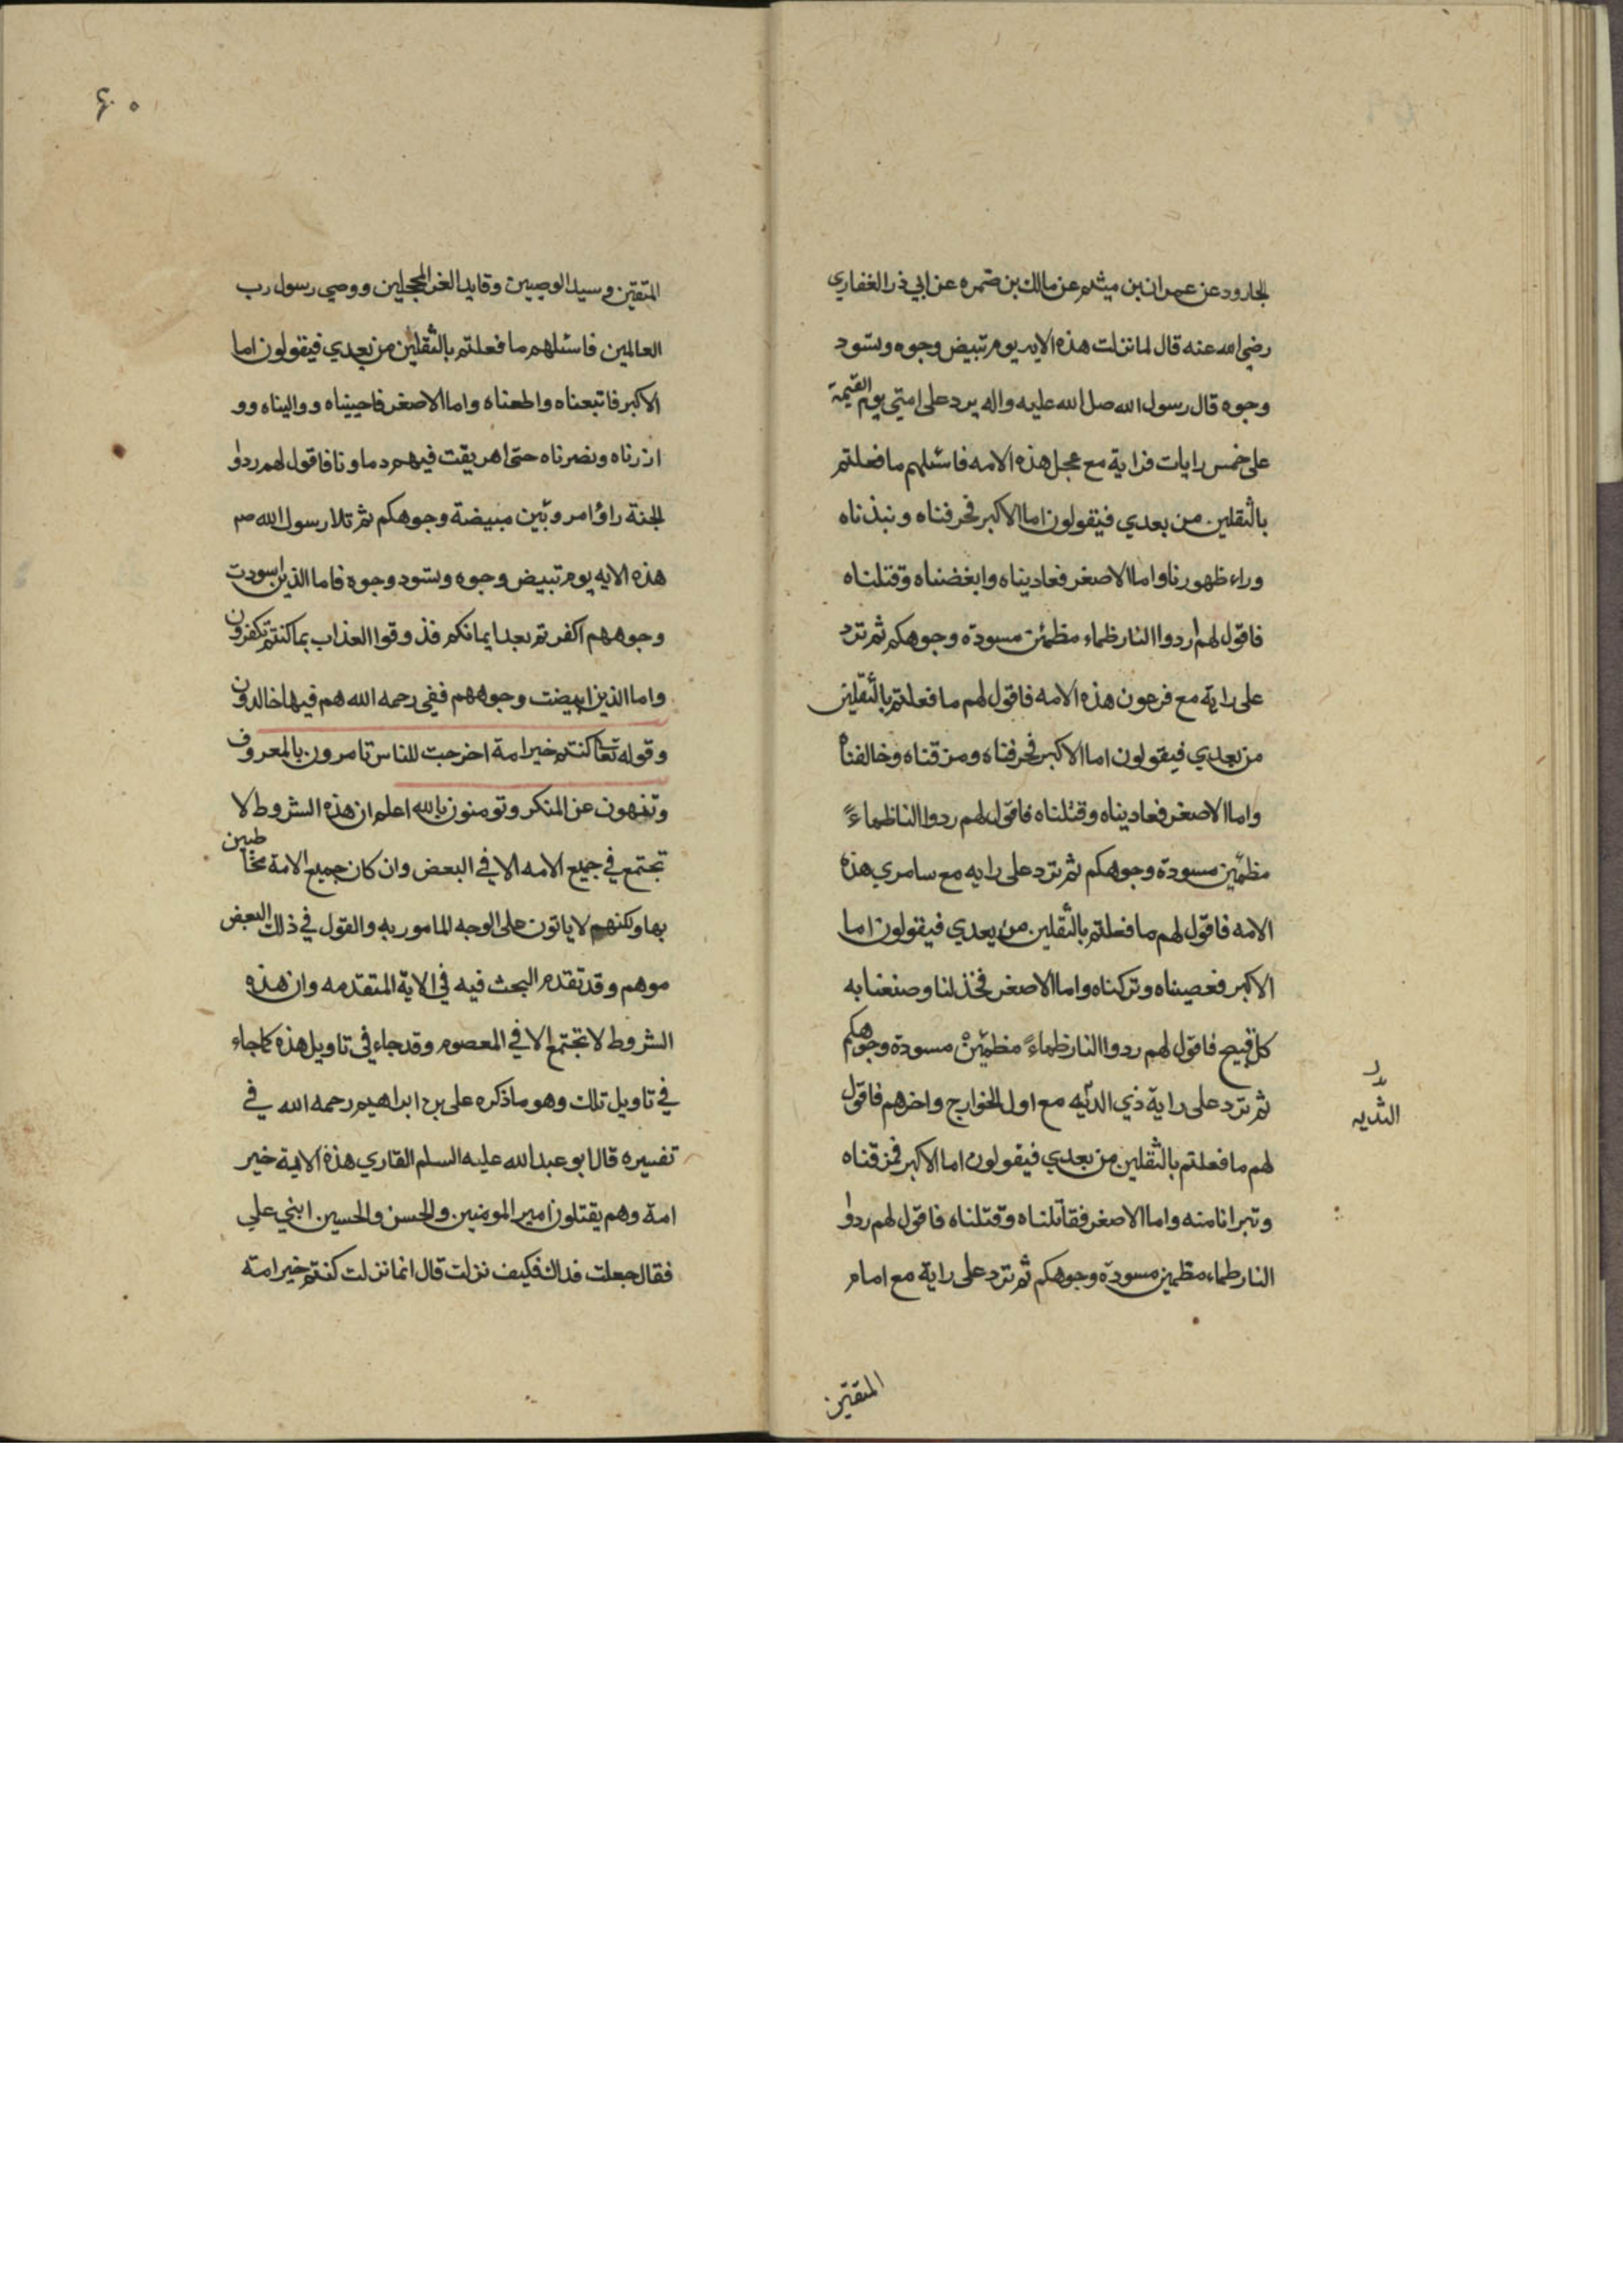 الجارود عن عمران بن ميثم عن مالك بن ضمره عن ابي ذر الغفاري
رضي الله عنه قال لما نزلت هذه الايه يوم تبيض وجوه وتسود
وجوه قال رسول الله صل الله عليه واله يرد على امتي يوم القيمة
على خمس رايات فراية مع عجل هذه الامه فاسئلهم ما فعلتم
بالثقلين من بعدي فيقولون اما الاكبر فحرفناه ونبذناه
وراء ظهورنا واما الاصغر فعاديناه وابغضناه وقتلناه
فاقول لهم ردوا النار ظماء مظمئن مسودة وجوهكم ثم ترد
على راية مع فرعون هذه الامه فاقول لهم ما فعلتم بالثقلين
من بعدي فيقولون اما الاكبر فحرفناه ومزقناه وخالفناه
واما الاصغر فعاديناه وقتلناه فاقول لهم ردوا النا ظماءً
مظمئين مسودة وجوهكم ثم ترد على رايه مع سامري هذه
الامه فاقول لهم ما فعلتم بالثقلين من بعدي فيقولون اما
الاكبر فعصيناه وتركناه واما الاصغر فخذلنا وصنعنا به
كل قبيح فاقول لهم ردوا النار ظماءً مظمئين مسودة وجوهكم
ثم ترد على راية ذي الديه مع اول الخوارج واخرهم فاقول
الثديه
لهم ما فعلتم بالثقلين من بعدي فيقولون اما الاكبر فمزقناه
وتبرانا منه واما الاصغر فقاتلناه وقتلناه فاقول لهم ردوا
النار ظماء مظمين مسودة وجوهكم ثم ترد على راية مع امام
المتقين
٦٠
المتقين وسيد الوصيين وقايد الغر المحجلين ووصي رسول رب
العالمين فاسئلهم ما فعلتم بالثقلين من بعدي فيقولون اما
الاكبر فاتبعناه واطعناه واما الاصغر فاحببناه وواليناه وو
ازرناه ونصرناه حتى اهريقت فيهم دماونا فاقول لهم ردوا
الجنة راؤا مرويين مبيضة وجوهكم ثم تلا رسول الله صم
هذه الايه يوم تبيض وجوه وتسود وجوه فاما الذين اسودت
وجوههم اكفرتم بعد ايمانكم فذوقوا العذاب بما كنتم تكفرون
واما الذين ابيضت وجوههم ففي رحمه الله هم فيها خالدون
وقوله تعا كنتم خير امة اخرجت للناس تامرون بالمعروف
وتنهون عن المنكر وتومنون بالله اعلم ان هذه الشروط لا
تجتمع في جميع الامه الا في البعض وان كان جميع الامة مخاطبين
بها ولكنهم لا ياتون على الوجه المامور به والقول في ذلك البعض
موهم وقد تقدم البحث فيه في الاية المتقدمه وان هذه
الشروط لا تجتمع الا في المعصوم وقد جاء في تاويل هذه كما جاء
في تاويل تلك وهو ما ذكره على بن ابراهيم رحمه الله في
تفسيره قال ابو عبد الله عليه السلم القاري هذه الاية خير
امة وهم يقتلون امير المومنين والحسن والحسين ابني علي
فقال جعلت فداك فكيف نزلت قال انما نزلت كنتم خير امة